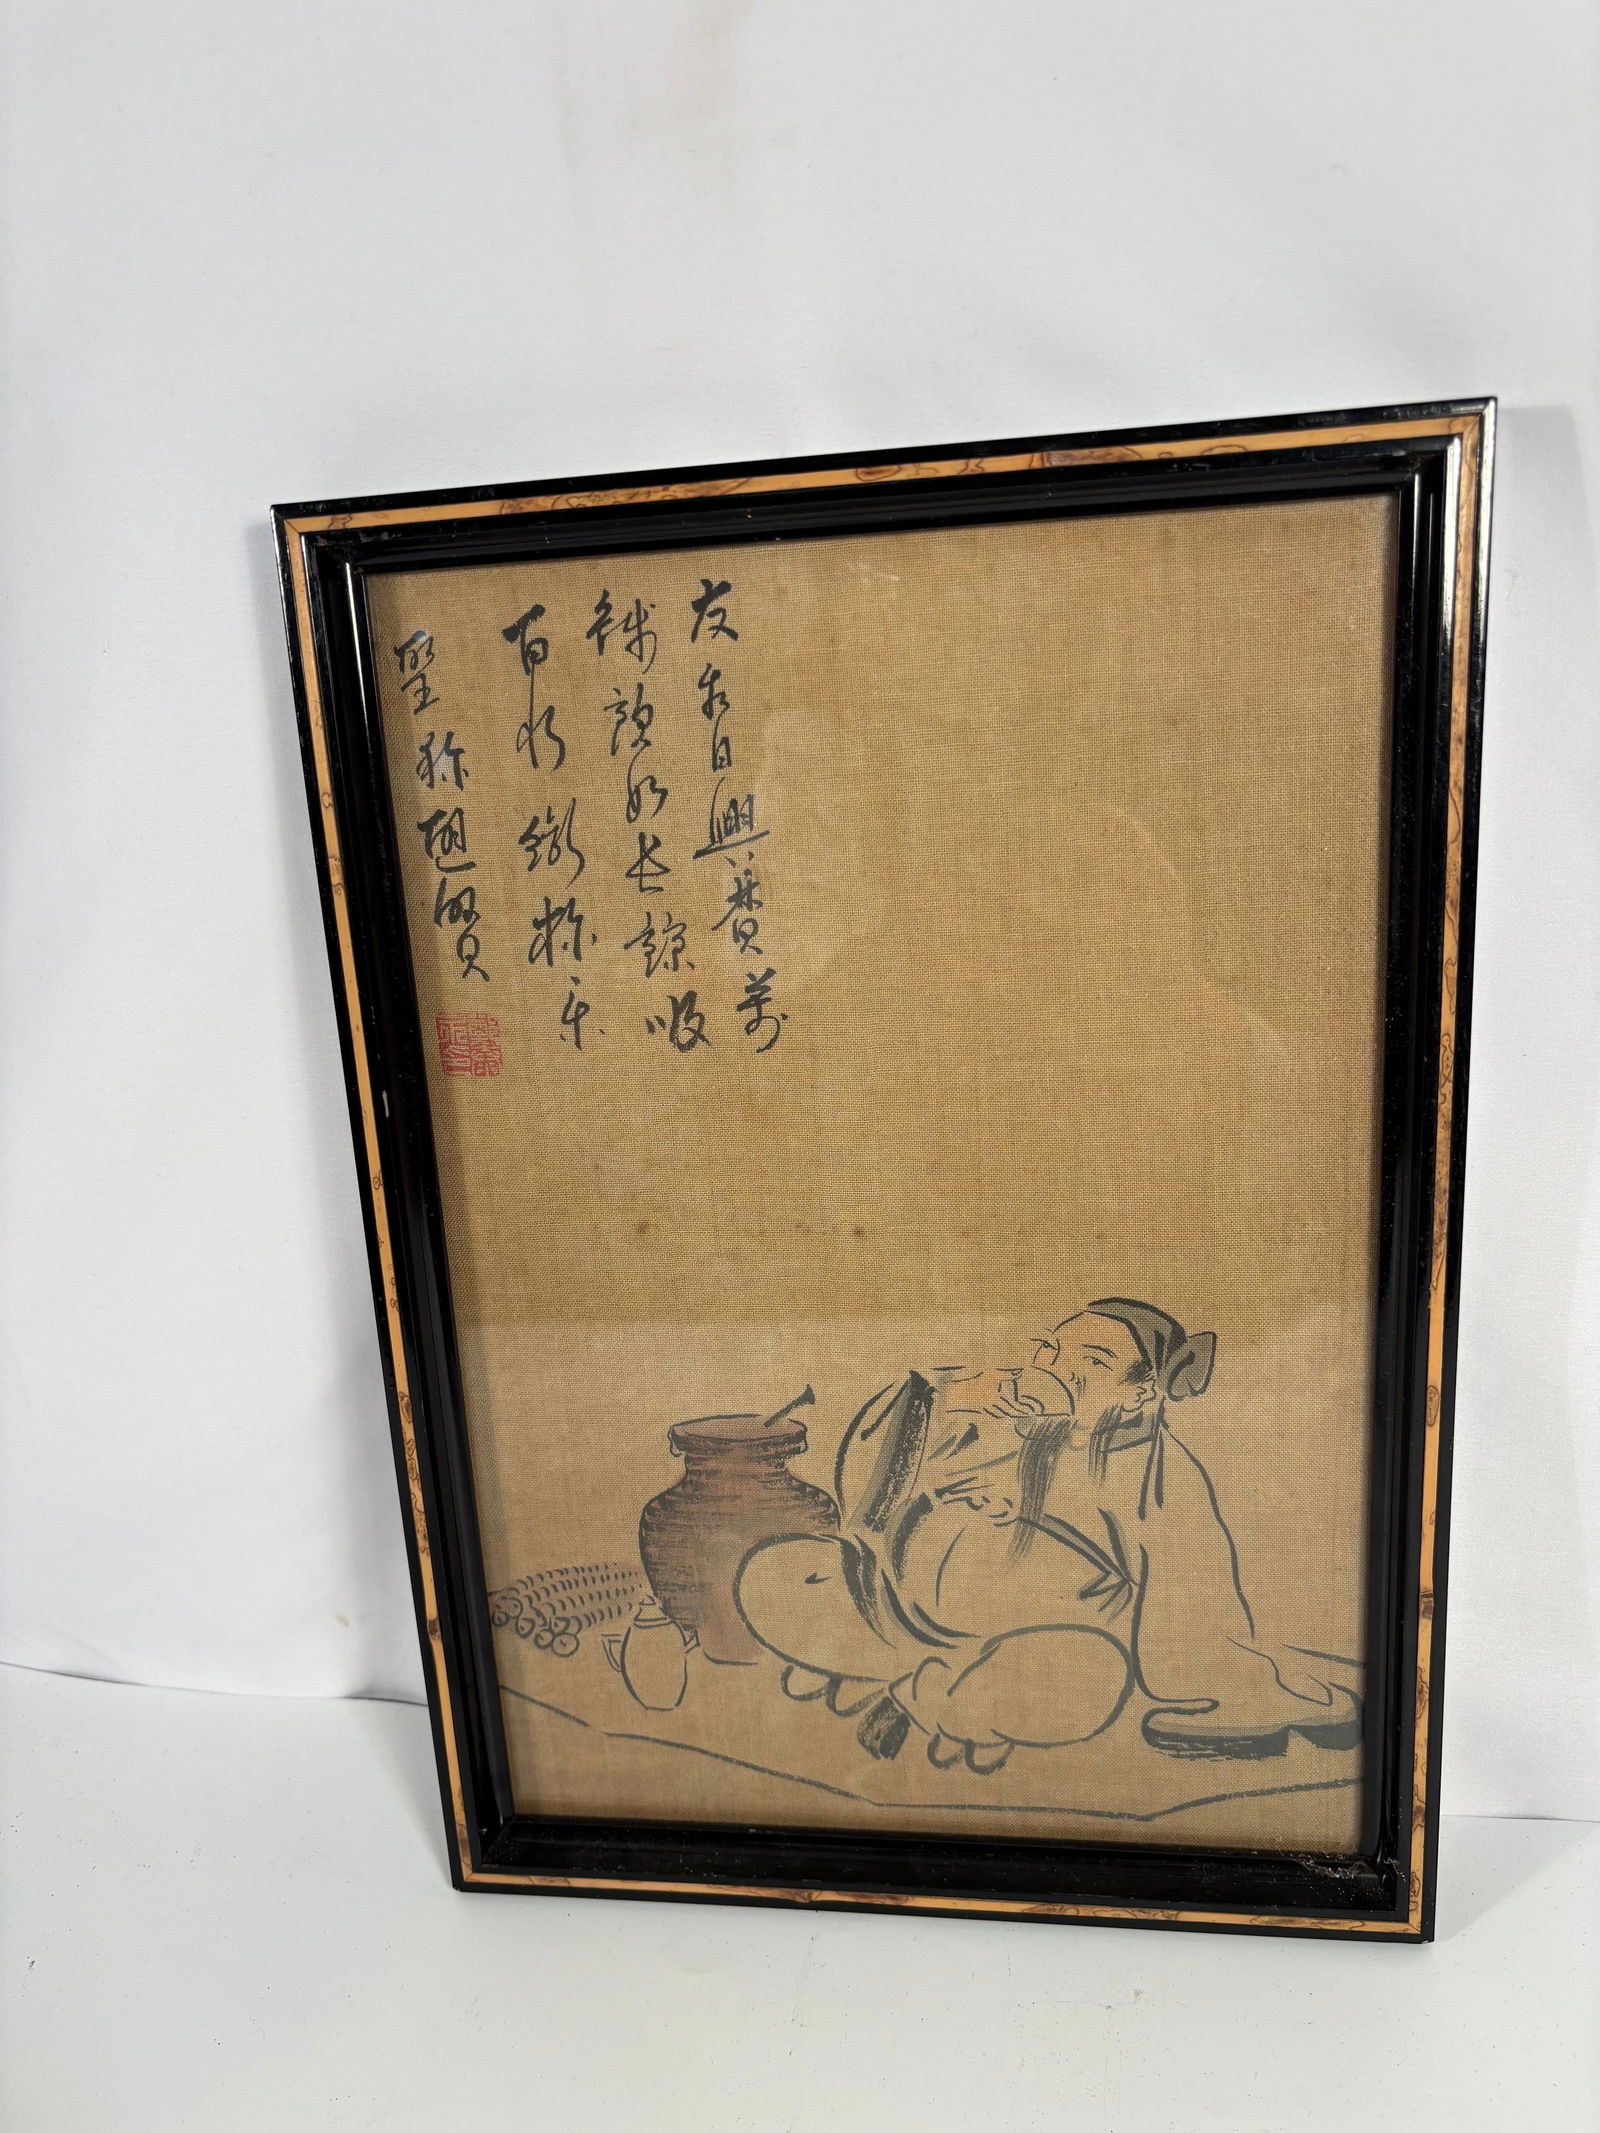 左相日興費萬
錢飲如長鯨吸
百川銜杯樂
聖稱避賢